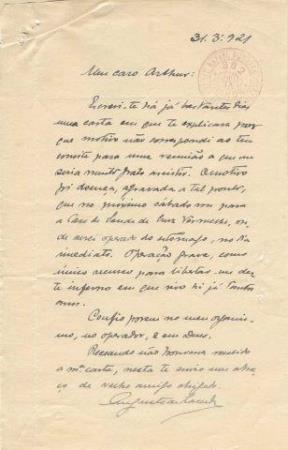 31.3.921
Meu caro Arthur:
Escrevi-te há já bastantes dias
uma carta em que te explicava por
que motivo não correspondi ao teu
convite para uma reunião a que me
seria muito grato assistir. O motivo
foi doença, agravada a tal ponto,
que no próximo sábado vou para
a Casa de Saude da Cruz Vermelha, on-
de serei operado do estomago, no dia
immediato. Operação grave, como
unico recurso para libertar-me des-
te inferno em que vivo há já tantos
anos.
Confio porem no meu organis-
mo, no operador, e em Deus.
Receando não houvesse recebido
a mª carta, nesta te envio um abra-
ço de velho amigo obrigado
Augusto de